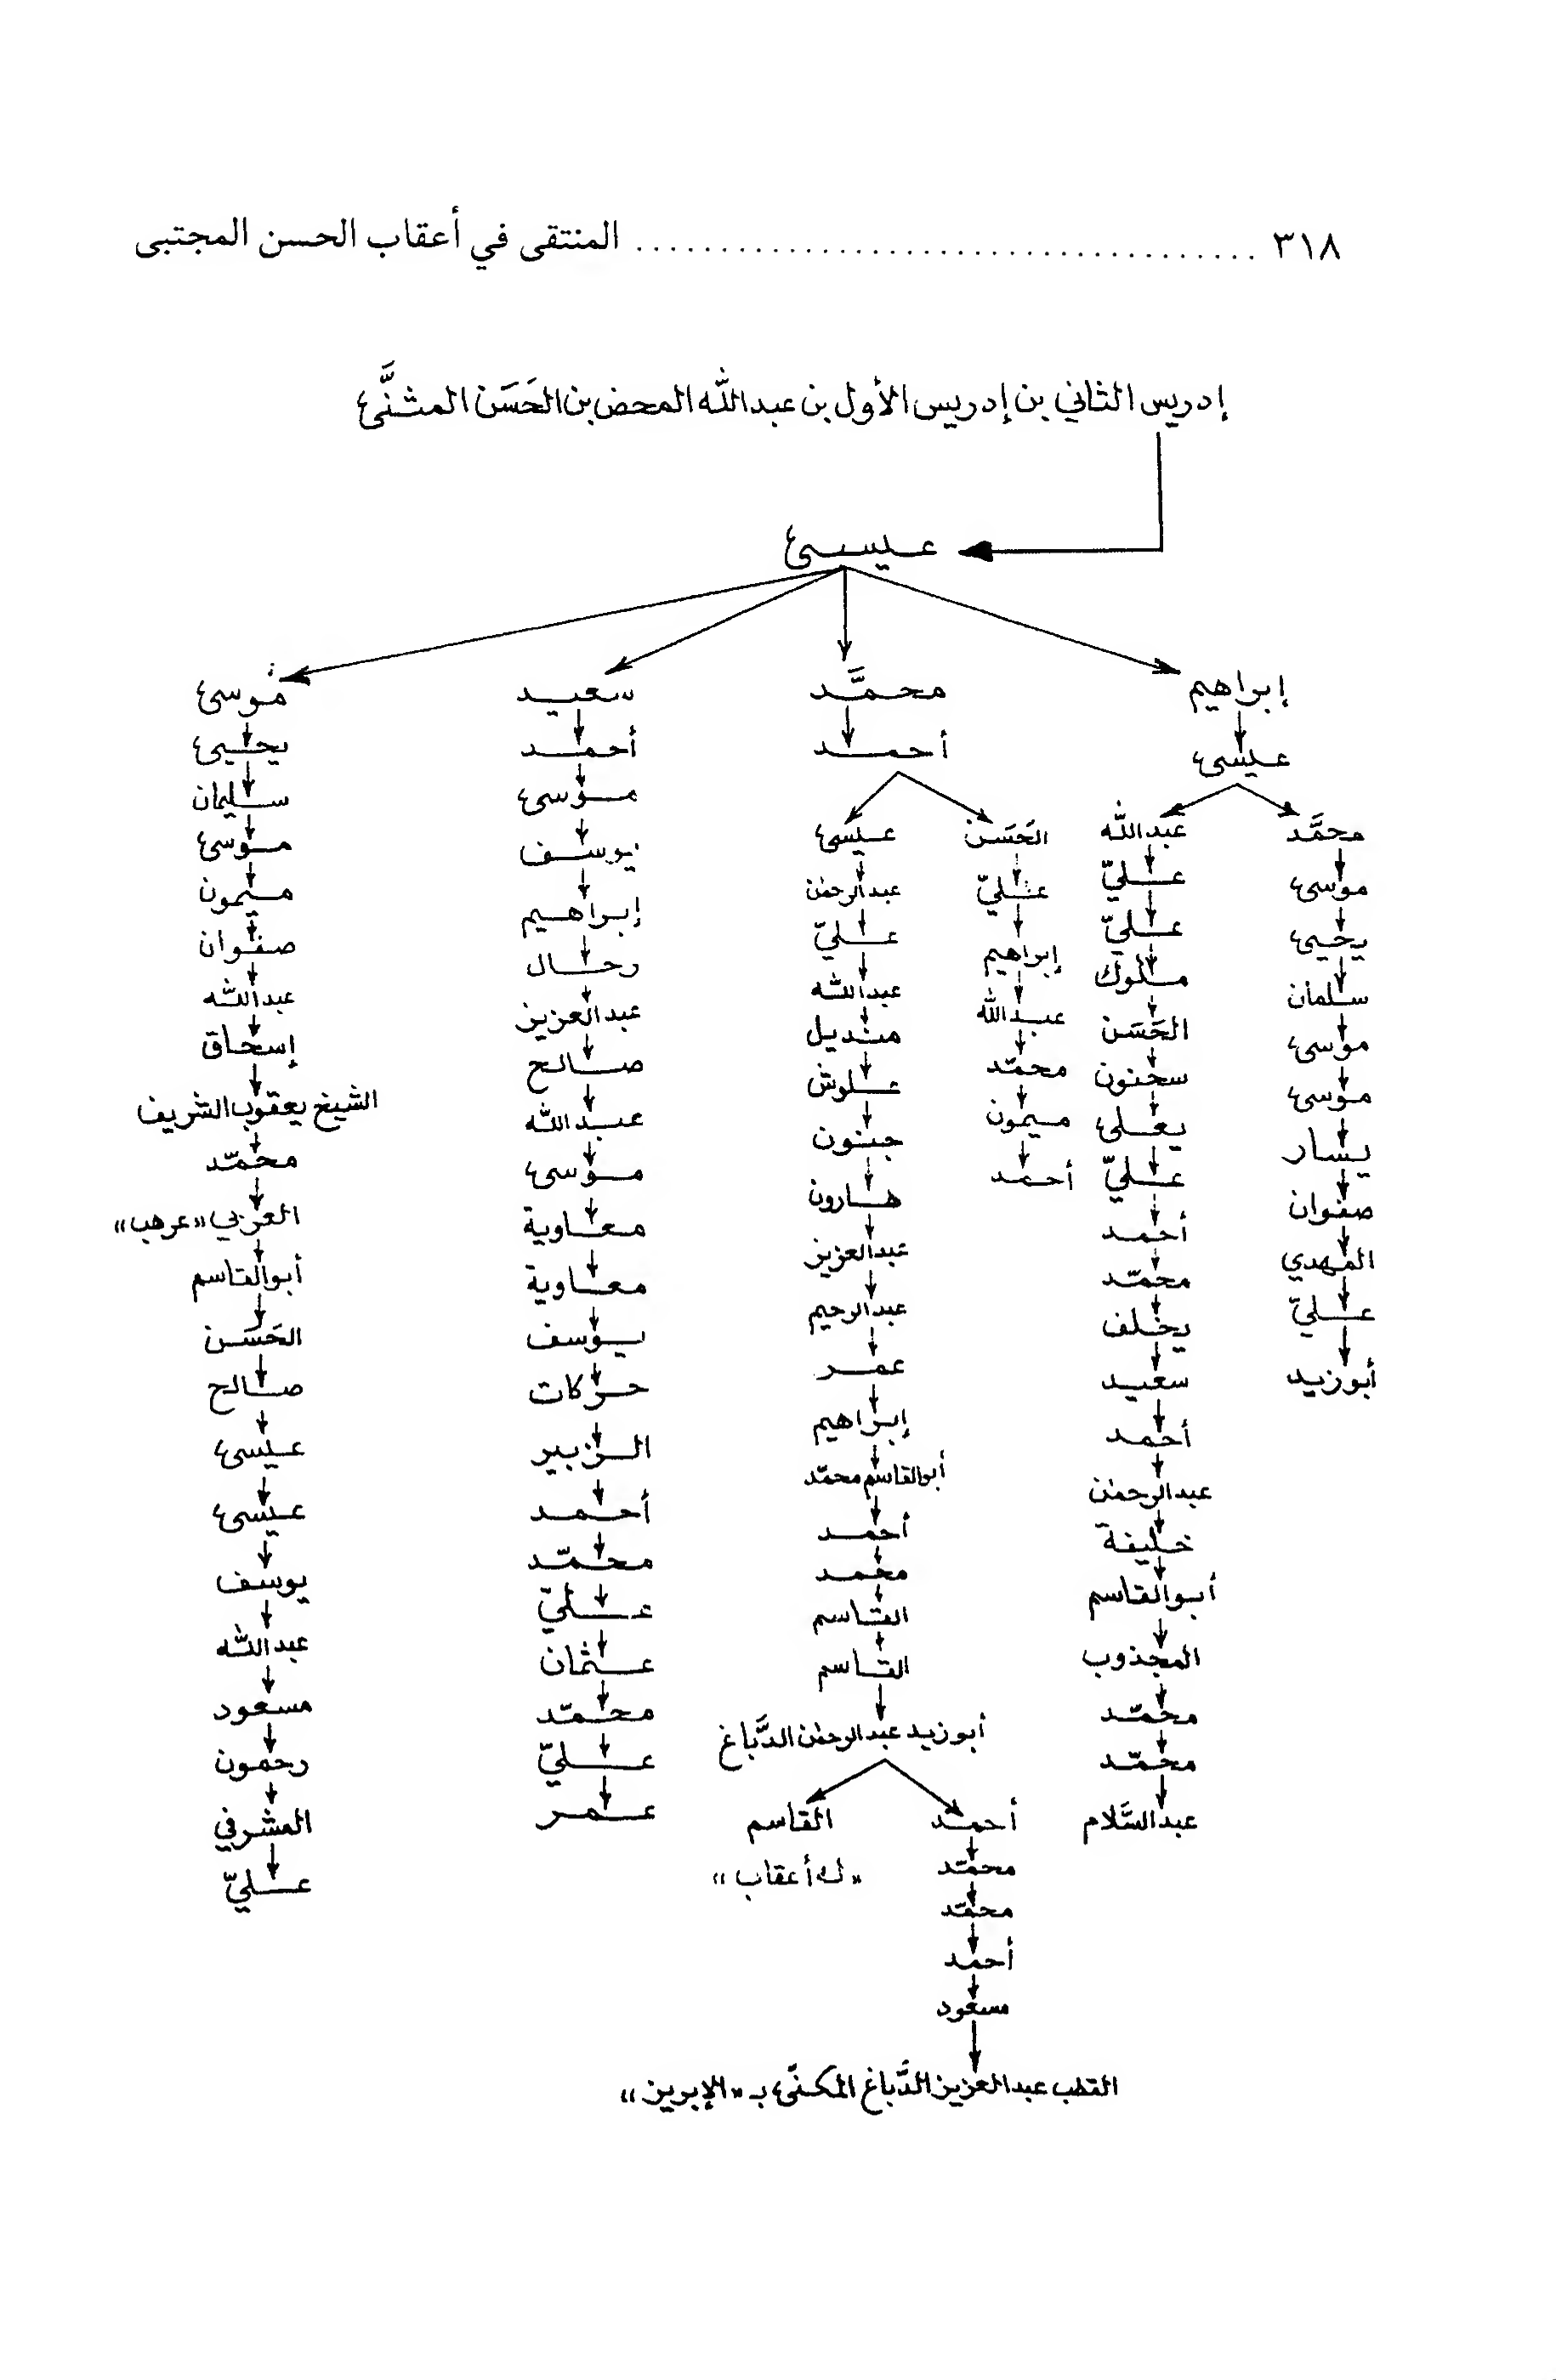 ٣١٨ ..................................... المنتقى في أعقاب الحسن المجتبى
إدريس الثاني بن إدريس الأول بن عبدالله المحض بن الحَسَن المثنَّى
عيسى
إبراهيم
عيسى
محمَّد
موسى
يحيى
سلمان
موسى
موسى
يسار
صفوان
المهدي
عليّ
أبوزيد
عبدالله
عليّ
عليّ
ملوك
الحَسَن
سحنون
يعلى
عليّ
أحمد
محمّد
يخلف
سعيد
أحمد
عبدالرحمٰن
خليفة
أبوالقاسم
المجذوب
محمّد
محمّد
عبدالسَّلام
محمَّد
أحمد
الحَسَن
عليّ
إبراهيم
عبدالله
محمّد
ميمون
أحمد
عيسى
عبدالرحمٰن
عليّ
عبدالله
منديل
علوش
جنون
هارون
عبدالعزيز
عبدالرحيم
عمر
إبراهيم
أبوالقاسم محمّد
أحمد
محمد
القاسم
القاسم
أبوزيد عبدالرحمٰن الدَّباغ
أحمد
محمّد
محمّد
أحمد
مسعود
القطب عبدالعزيز الدَّباغ المكنّى بـ «الإبريز»
القاسم
«له أعقاب»
سعيد
أحمد
موسى
يوسف
إبراهيم
رحال
عبدالعزيز
صالح
عبدالله
موسى
معاوية
معاوية
يوسف
حركات
الزبير
أحمد
محمّد
عليّ
عثمان
محمّد
عليّ
عمر
مُوسى
يحيى
سليمان
موسى
ميمون
صفوان
عبدالله
إسحاق
الشيخ يعقوب الشريف
محمّد
العزبي «عرهب»
أبوالقاسم
الحَسَن
صالح
عيسى
عيسى
يوسف
عبدالله
مسعود
رحمون
المشرفي
عليّ